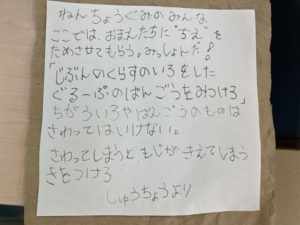 ねんちょうぐみのみんな
ここでは、おまえたちに"ちえ"を
ためさせてもらう。みっしょんだ!
「じぶんのくらすのいろをした
ぐるーぷのばんごうをみつけろ」
ちがういろやばんごうのものは
さわってはいけない。
さわってしまうと もじが きえてしまう
きをつけろ
しゅうちょうより